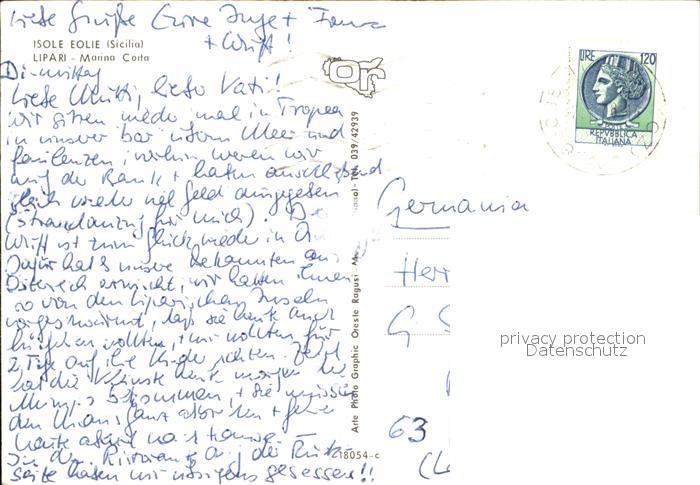 Liebe Grüße Eure Inge + Franco
+ Wuffi!
ISOLE EOLIE (Sicilia)
LIPARI - Marina Corta
Di-mittag
Liebe Mutti, lieber Vati!!
Wir sitzen wieder mal in Tropea
in unserer bar überm Meer und
faulenzen, vorhin waren wir
auf der Bank + haben anschließend
gleich wieder viel Geld ausgegeben
(Strandanzug für mich). De
Wuffi ist zum Glück wieder in O
Dafür hat's unsere Bekannten aus
Österreich erwischt, wir hatten ihnen
so von den liparischen Inseln
vorgeschwärmt, daß sie heute auch
hinfahren wollten, + wir wollten für
2 Tage auf ihre Kinder achten. Jetzt
hat die Kleinste heute morgen
Mumps bekommen, + sie müssen
den Urlaub ganz abbrechen + fahren
heute abend nach Hause.
In der Pizzeria auf der Rück-
seite haben wir übrigens gegessen!!
or
Arte Photo Graphic Oreste Ragusi - M
ano) - Tel. 039/42939
18054-c
LIRE 120
REPVBBLICA
ITALIANA
Germania
Herr
G S
63
privacy protection
Datenschutz